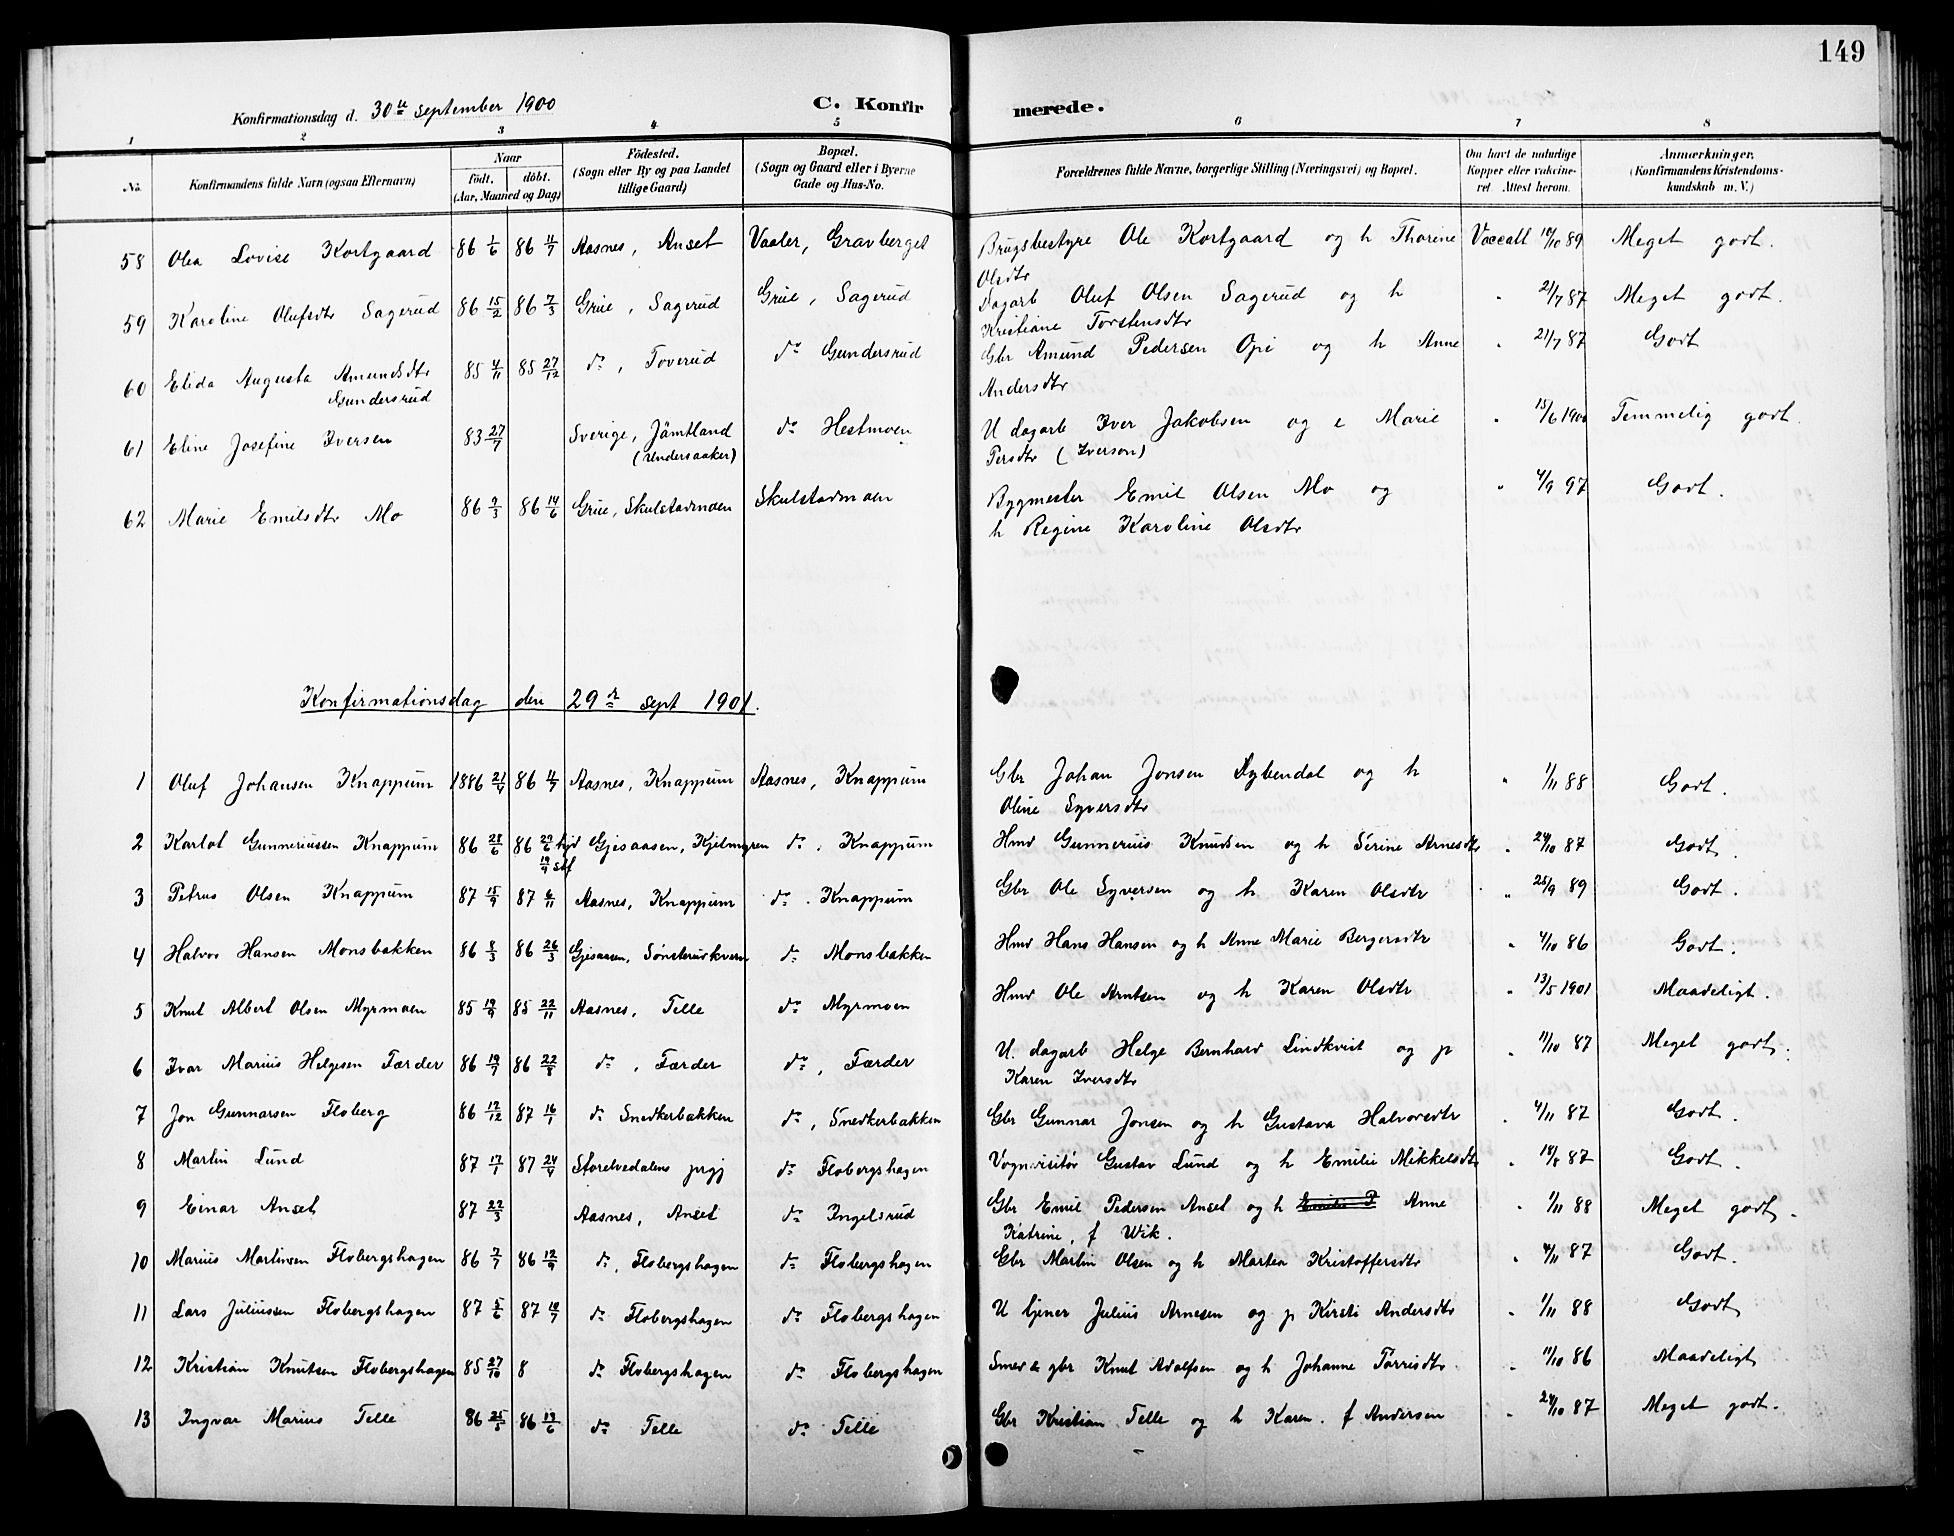 149
Konfirmationsdag d. 30te september 1900
C. Konfirmerede.
1 2 3 4 5 6 7 8
No. Konfirmandens fulde Navn (ogsaa Efternavn) Naar født. døbt. (Aar, Maaned og Dag) Fødested. (Sogn eller By og paa Landet tillige Gaard) Bopæl. (Sogn og Gaard eller i Byerne Gade og Hus-No. Forældrenes fulde Navne, borgerlige Stilling (Næringsvei) og Bopæl. Om havt de naturlige Kopper eller vakcineret. Attest herom. Anmærkninger. (Konfirmandens Kristendomskundskab m. V.)
58 Olea Lovise Kortgaard 86 1/6 86 11/7 Aasnes, Anset Vaaler, Gravberget Brugsbestyre Ole Kortgaard og h Thorine Vaccatt 18/10 89 Meget godt.
Olsdtr
59 Karoline Olufsdtr Sagerud 86 15/2 86 7/3 Grue, Sagerud Grue, Sagerud Dagarb Oluf Olsen Sagerud og h " 21/7 87 Meget godt.
Kristiane Torstensdtr
60 Elida Augusta Amundsdtr 85 4/11 85 27/12 do, Toverud do Gundersrud Gbr Amund Pedersen Opi og h Anne " 21/7 87 Godt
Gundersrud Andersdtr
61 Eline Josefine Iversen 83 27/7 Sverige, Jämtland do Hestmoen U dagarb Iver Jakobsen og e Marie " 15/6 1900 Temmelig godt.
(Undersaaker) Persdtr (Iverson)
62 Marie Emilsdtr Mo 86 2/3 86 14/6 Grue, Skulstadmoen Skulstadmoen Bygmester Emil Olsen Mo og " 4/9 97 Godt.
h Regine Karoline Olsdtr
Konfirmationsdag den 29de sept 1901.
1 Oluf Johansen Knappum 1886 21/4 86 4/7 Aasnes, Knappum Aasnes, Knappum Gbr Johan Jonsen Dybendal og h " 1/11 88 Godt.
Oline Syversdtr
2 Karlot Gunneriussen Knappum 86 28/6 86 29/6 hjd Gjesaasen, Kjelmyren do. Knappum Hmd Gunnerius Knudsen og h Serine Arnesdtr " 24/10 87 Godt.
19/9 stf
3 Petrus Olsen Knappum 87 15/9 87 6/11 Aasnes, Knappum do. Knappum Gbr Ole Syversen og h Karen Olsdtr " 25/9 89 Godt.
4 Halvor Hansen Monsbakken 86 8/3 86 26/3 Gjesaasen, Sønsterudkvern do Monsbakken Hmd Hans Hansen og h Anne Marie Bergersdtr " 4/10 86 Godt.
5 Knut Albert Olsen Myrmoen 85 19/9 85 22/11 Aasnes, Telle do Myrmoen Hmd Ole Arntsen og h Karen Olsdtr " 13/5 1901 Maadeligt.
6 Ivar Marius Helgesen Færder 86 19/7 86 22/8 do, Færder do, Færder U. dagarb Helge Bernhard Lindkvist og p " 11/10 87 Meget godt.
Karen Iversdtr
7 Jon Gunnarsen Floberg 86 17/12 87 16/1 do Snedkerbakken do, Snedkerbakken Gbr Gunnar Jonsen og h Gustava Halvorsdtr " 4/11 87 Godt.
8 Martin Lund 87 17/1 87 24/4 Storelvedalens prgj do Flobergshagen Vognvisitør Gustav Lund og h Emilie Mikkelsdtr " 18/8 87 Godt.
9 Einar Anset 87 22/3 Aasnes, Anset do Ingelsrud Gbr Emil Pedersen Anset og h Emilie P Anne " 1/11 88 Meget godt.
Katrine, f Wik.
10 Marius Martinsen Flobergshagen 86 7/7 86 12/9 do, Flobergshagen do Flobergshagen Gbr Martin Olsen og h Martea Kristoffersdtr " 4/11 87 Godt.
11 Lars Juliussen Flobergshagen 87 5/6 87 10/7 do Flobergshagen do Flobergshagen U tjener Julius Arnesen og p Kirsti Andersdtr " 1/11 88 Godt
12 Kristian Knutsen Flobergshagen 85 27/10 8 do Flobergshagen do Flobergshagen Smed & gbr Knut Adolfsen og h Johanne Tørrisdtr " 11/10 86 Maadeligt
13 Ingvar Marius Telle 86 25/5 86 13/6 do Telle do Telle Gbr Kristian Telle og h Karen. f Andersen " 24/10 87 Meget godt.